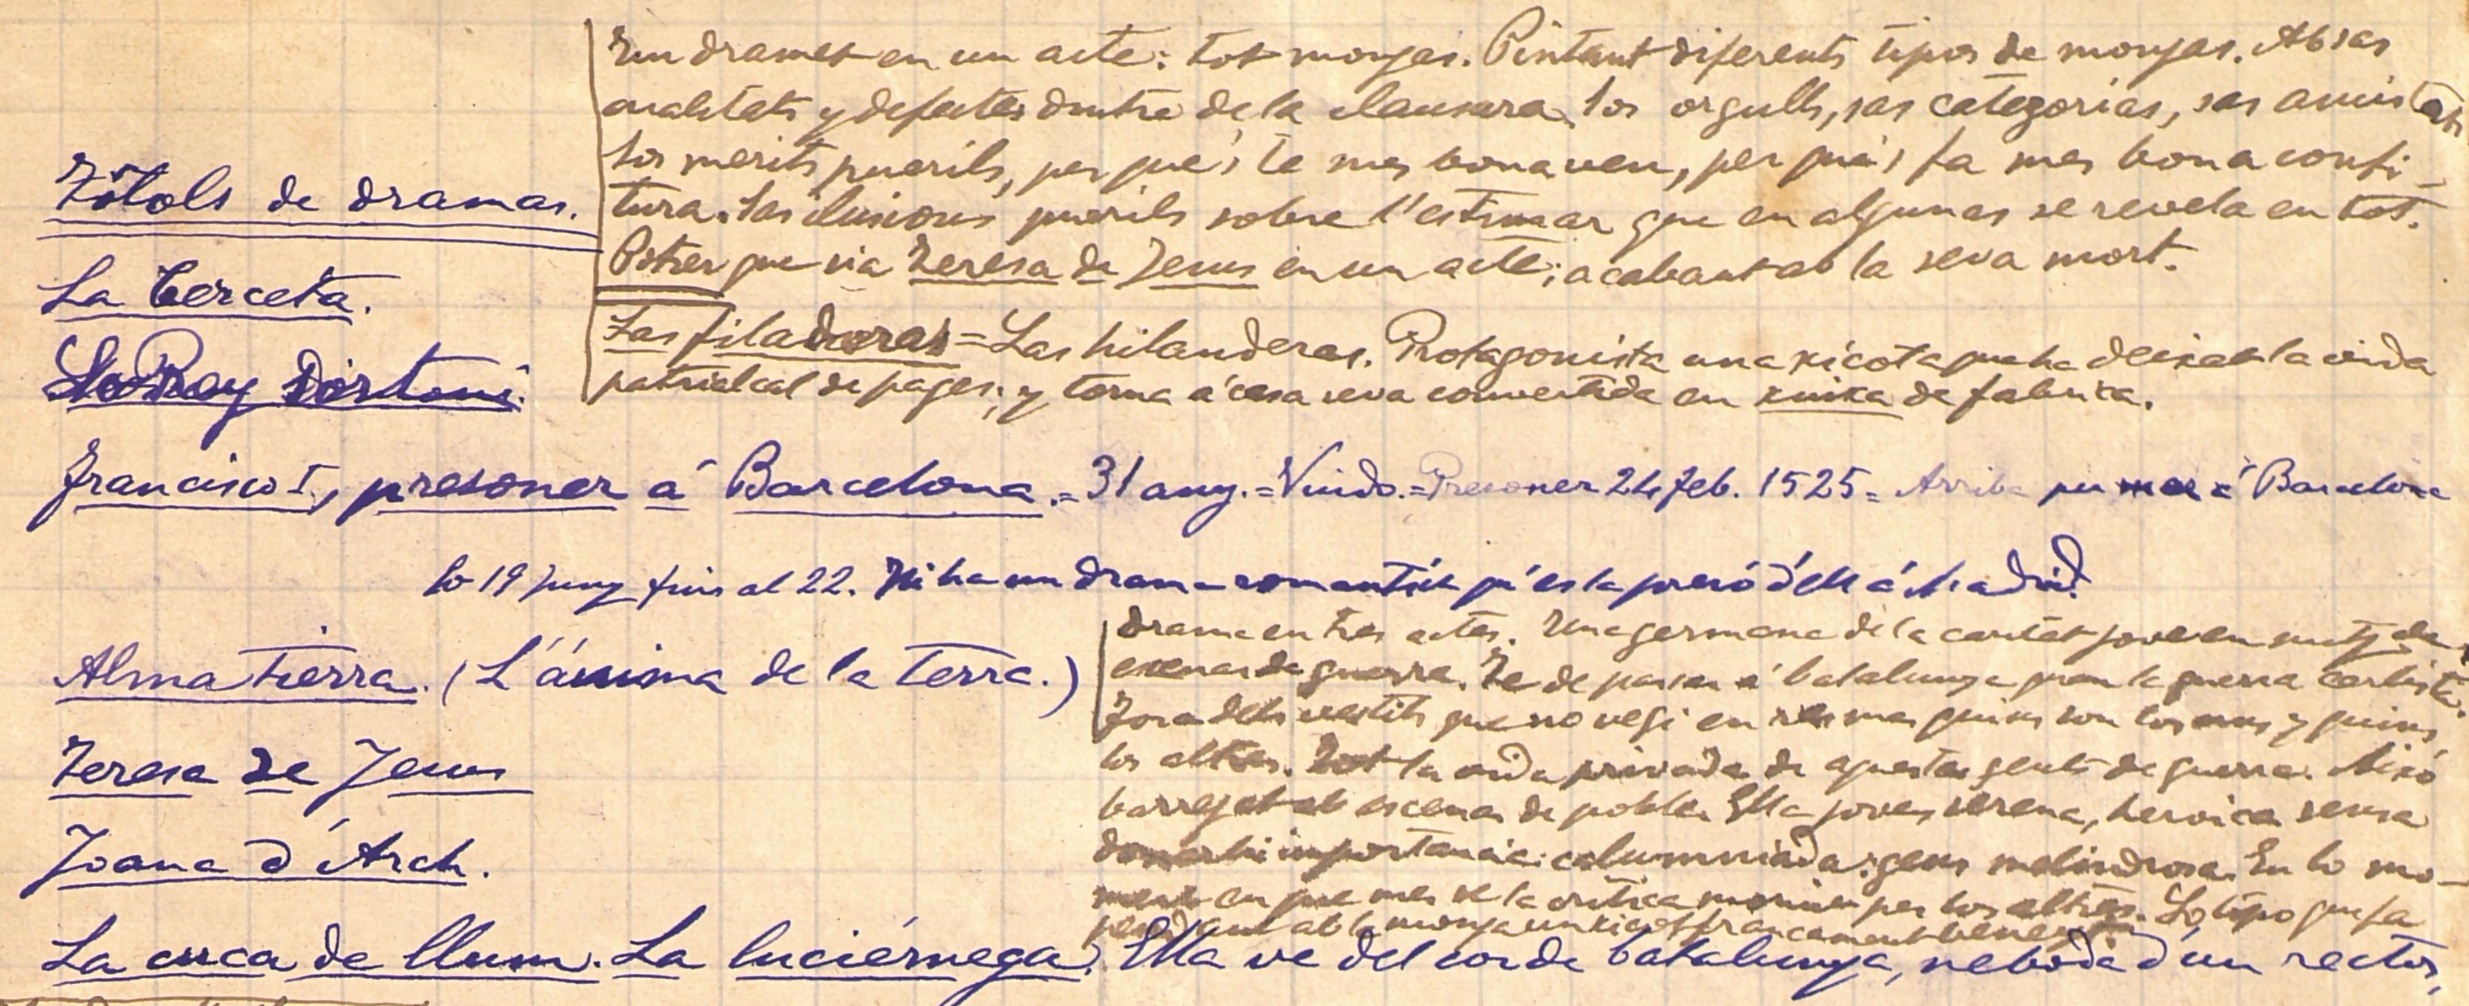 Un dramet en un acte: tot monjas. Pintant diferents tipos de monjas. Ab sas
qualitats y defectes dintre de la clausura, los orgulls, sas categorías, sas amistats,
los merits puerils, per que's té mes bona veu, per que's fa mes bona confi-
tura. Las ilusions puerils sobre l'estimar que en algunas se revela en tot.
Potser que sia Teresa de Jesus en un acte; acabant ab la seva mort.
Las filadoras = Las hilanderas. Protagonista una xicota que ha deixat la vida
patriarcal de pages; y torna á casa seva convertida en xinxa de fabrica.
Títols de dramas.
La Cerceta.
Lo Roy
Francisco I, presoner á Barcelona. = 31 any. = Viudo. = Presoner 24 Feb. 1525 = Arriba per mar á Barcelona
lo 19 juny fins al 22. Hi ha un drama romantich qu'es la presó d'ell á Madrid.
Alma tierra. (L'ánima de la terra.)
Drama en tres actes. Una germana de la caritat jove en mitj de
escenas de guerra. Te de passar á Catalunya quan la guerra carlista.
Fora dels vestits que no vegi en res mes quins son los uns y quins
los altres. Tot la vida privada de aquesta gent de guerra. Aixó
barrejat ab escenas de poble. Ella jove, serena, heroica sensa
donarhi importancia: calumniada: gens melindrosa. En lo mo-
ment en que mes se la critica morint per los altres. Lo tipo que fa
pendant ab la monja un xicot francament
Teresa de Jesus
Joana d'Arch.
La cuca de llum. La luciérnega. Ella ve del cor de Catalunya, neboda d'un rector,